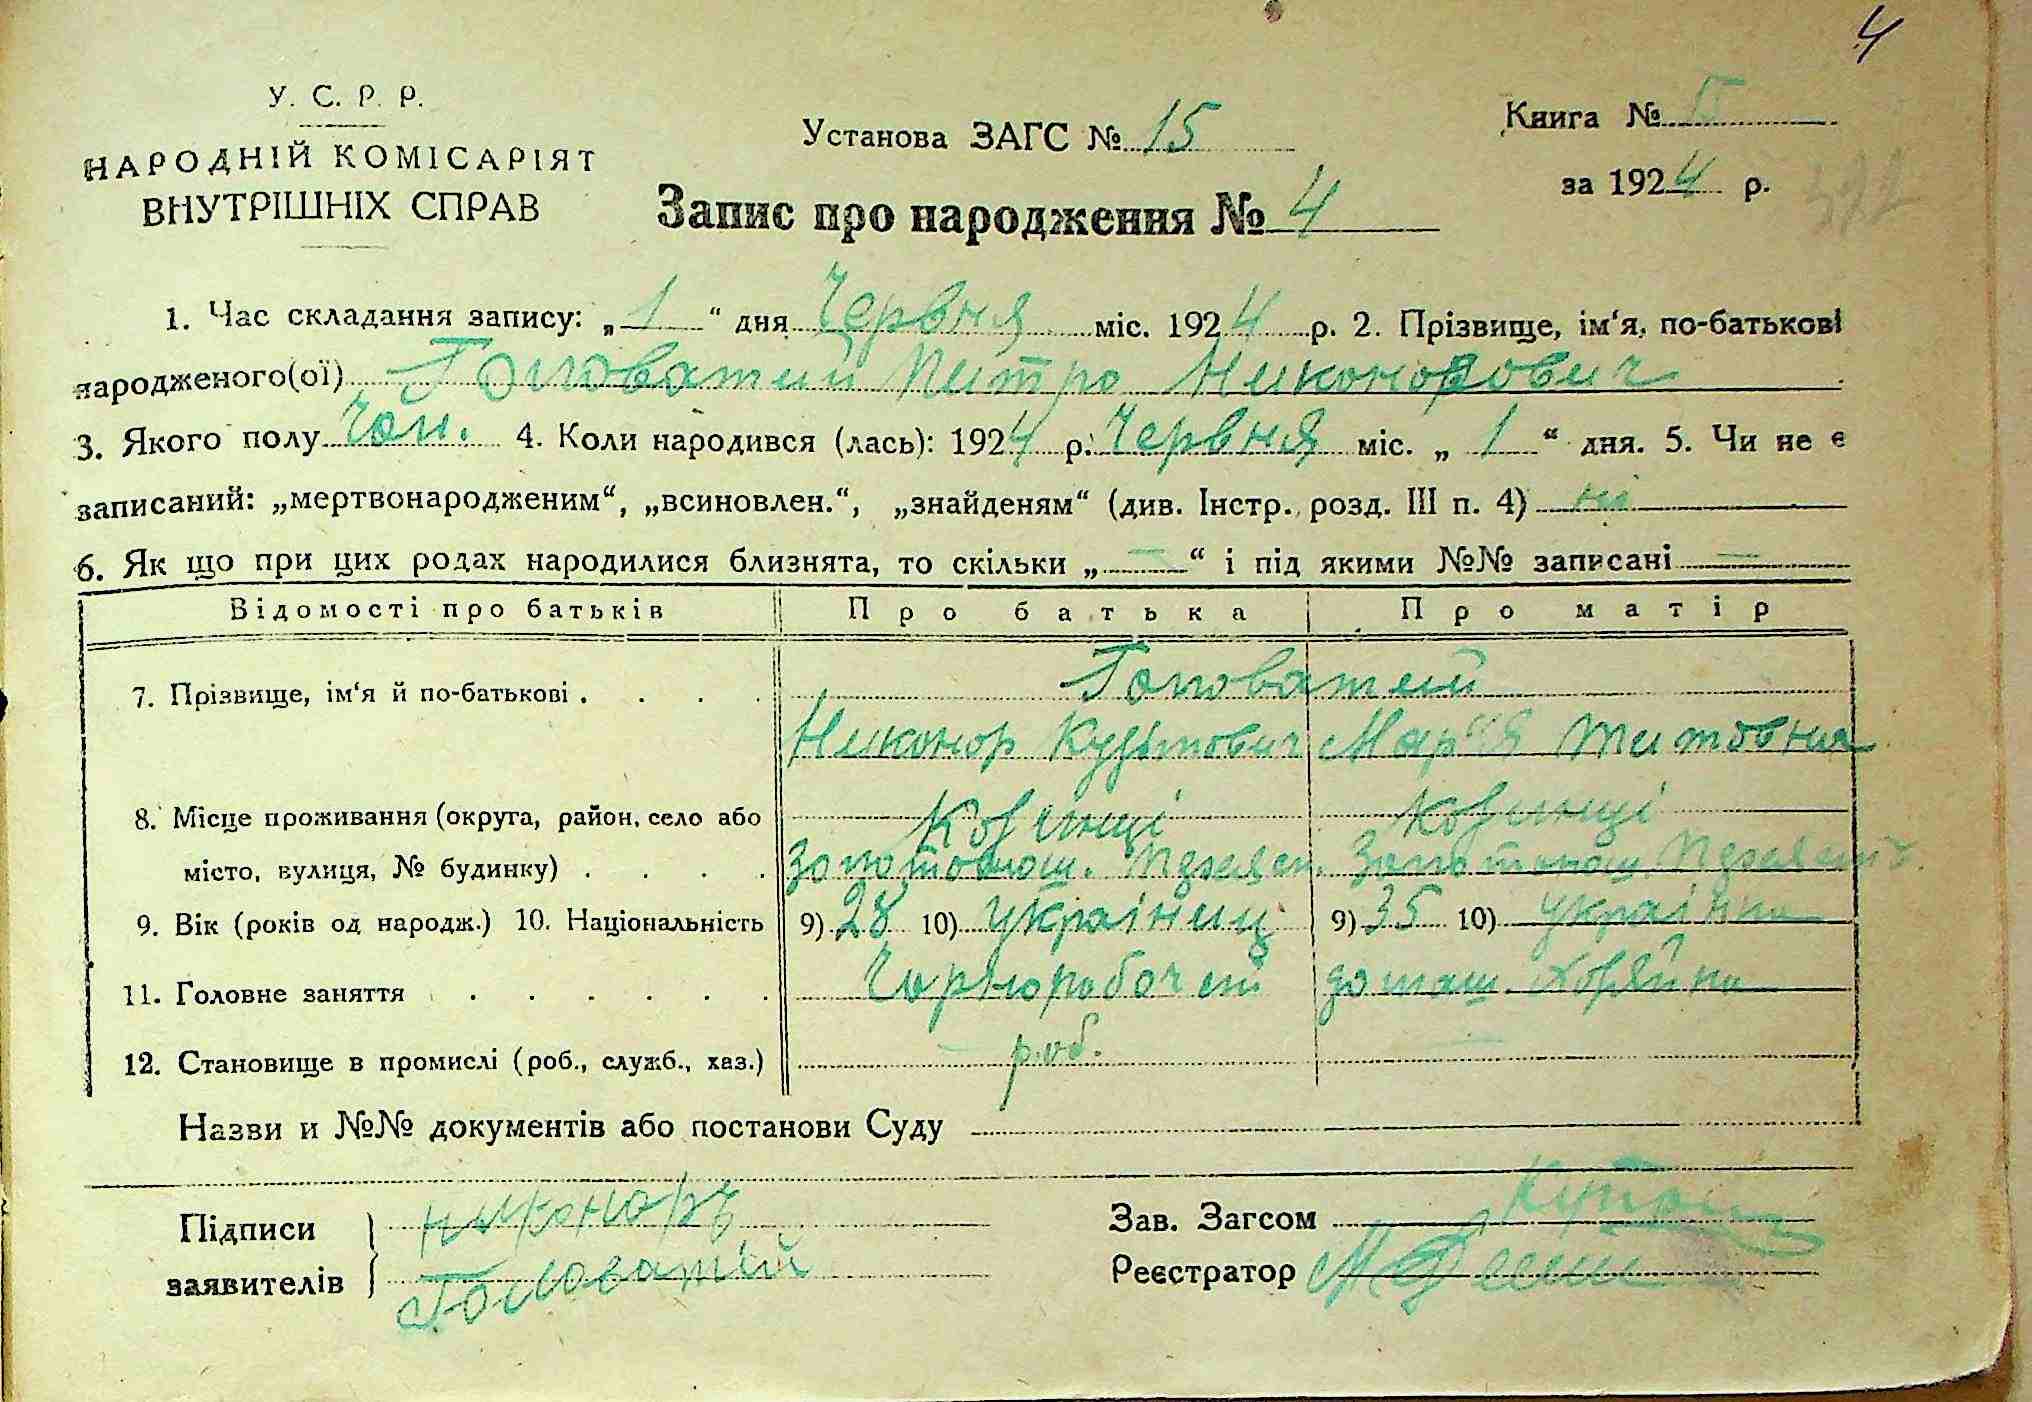 4
У. С. Р. Р.
НАРОДНІЙ КОМІСАРІЯТ
ВНУТРІШНІХ СПРАВ
Установа ЗАГС № 15
Книга № 5
за 1924 р.
Запис про народження № 4
1. Час складання запису: „ 1 “ дня Червня міс. 1924 р. 2. Прізвище, ім‘я, по-батькові
народженого(ої) Головатий Питро Никонорович
3. Якого полу Чол. 4. Коли народився (лась): 1924 р. Червня міс. „ 1 “ дня. 5. Чи не є
записаний: „мертвонародженим“, „всиновлен.“, „знайденям“ (див. Інстр. розд. III п. 4) ні
6. Як що при цих родах народилися близнята, то скільки „ — “ і під якими №№ записані —
Відомості про батьків Про батька Про матір
7. Прізвище, ім‘я й по-батькові . . . . Головатий
Никонор Кузьмович Марія Титовна
8. Місце проживання (округа, район, село або Ковинці Ковинці
місто, вулиця, № будинку) . . . . Золотонош. Золотонош.
9. Вік (років од народж.) 10. Національність 9) 28 10) українец 9) 35 10) українка
11. Головне заняття . . . . . . Чорнорабочий домаш. Хозяйка
12. Становище в промислі (роб., служб., хаз.) роб.
Назви и №№ документів або постанови Суду
Підписи никоноръ Зав. Загсом
заявителів Головатий Реєстратор